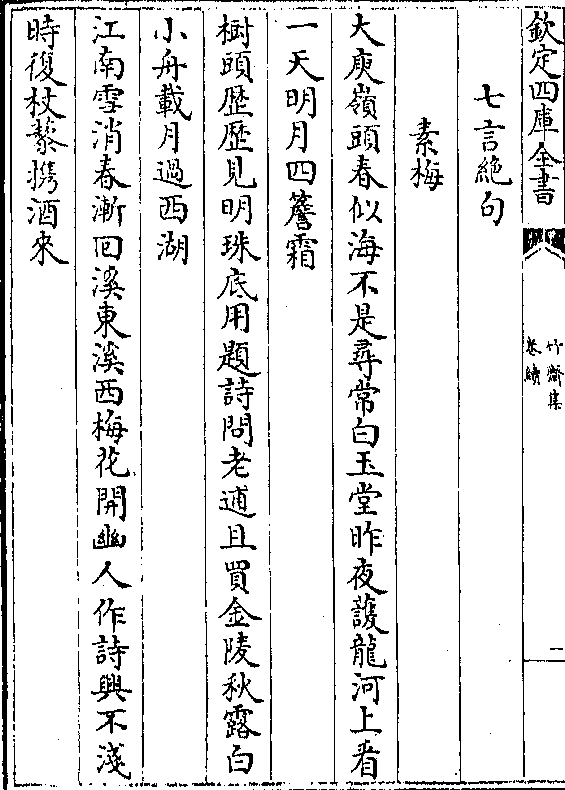 欽定四庫全書
竹齋集
卷續
二
七言絶句
素梅
大庾嶺頭春似海不是尋常白玉堂昨夜䕶龍河上看
一天明月四簷霜
樹頭歴歴見明珠底用題詩問老逋且買金陵秋露白
小舟載月過西湖
江南雪消春漸回溪東溪西梅花開幽人作詩興不淺
時復杖藜携酒來